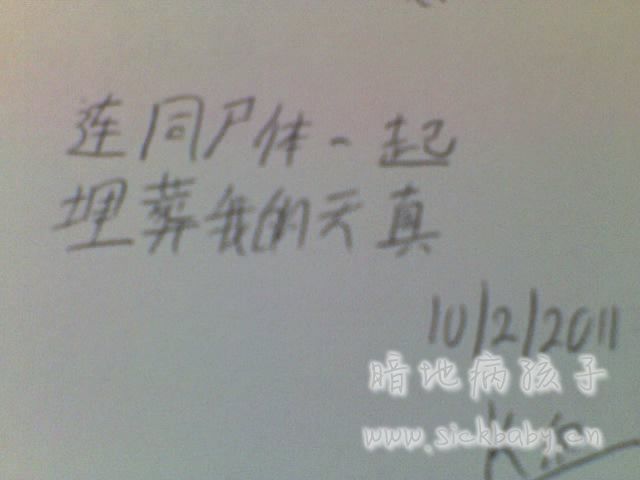 连同尸体一起
埋葬我的天真
10/2/2011
暗地病孩子
www.sickbaby.cn